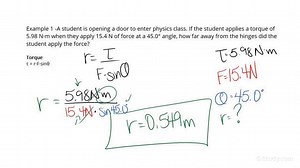 Example 1 -A student is opening a door to enter physics class. If the student applies a torque of
5.98 N·m when they apply 15.4 N of force at a 45.0° angle, how far away from the hinges did the
student apply the force?
Torque
τ = r·F·sinθ
r = τ / F·sinθ
τ = 5.98 N·m
F = 15.4 N
θ = 45.0°
r = ?
r = 5.98 N·m / 15.4 N · sin 45.0°
r = 0.549 m